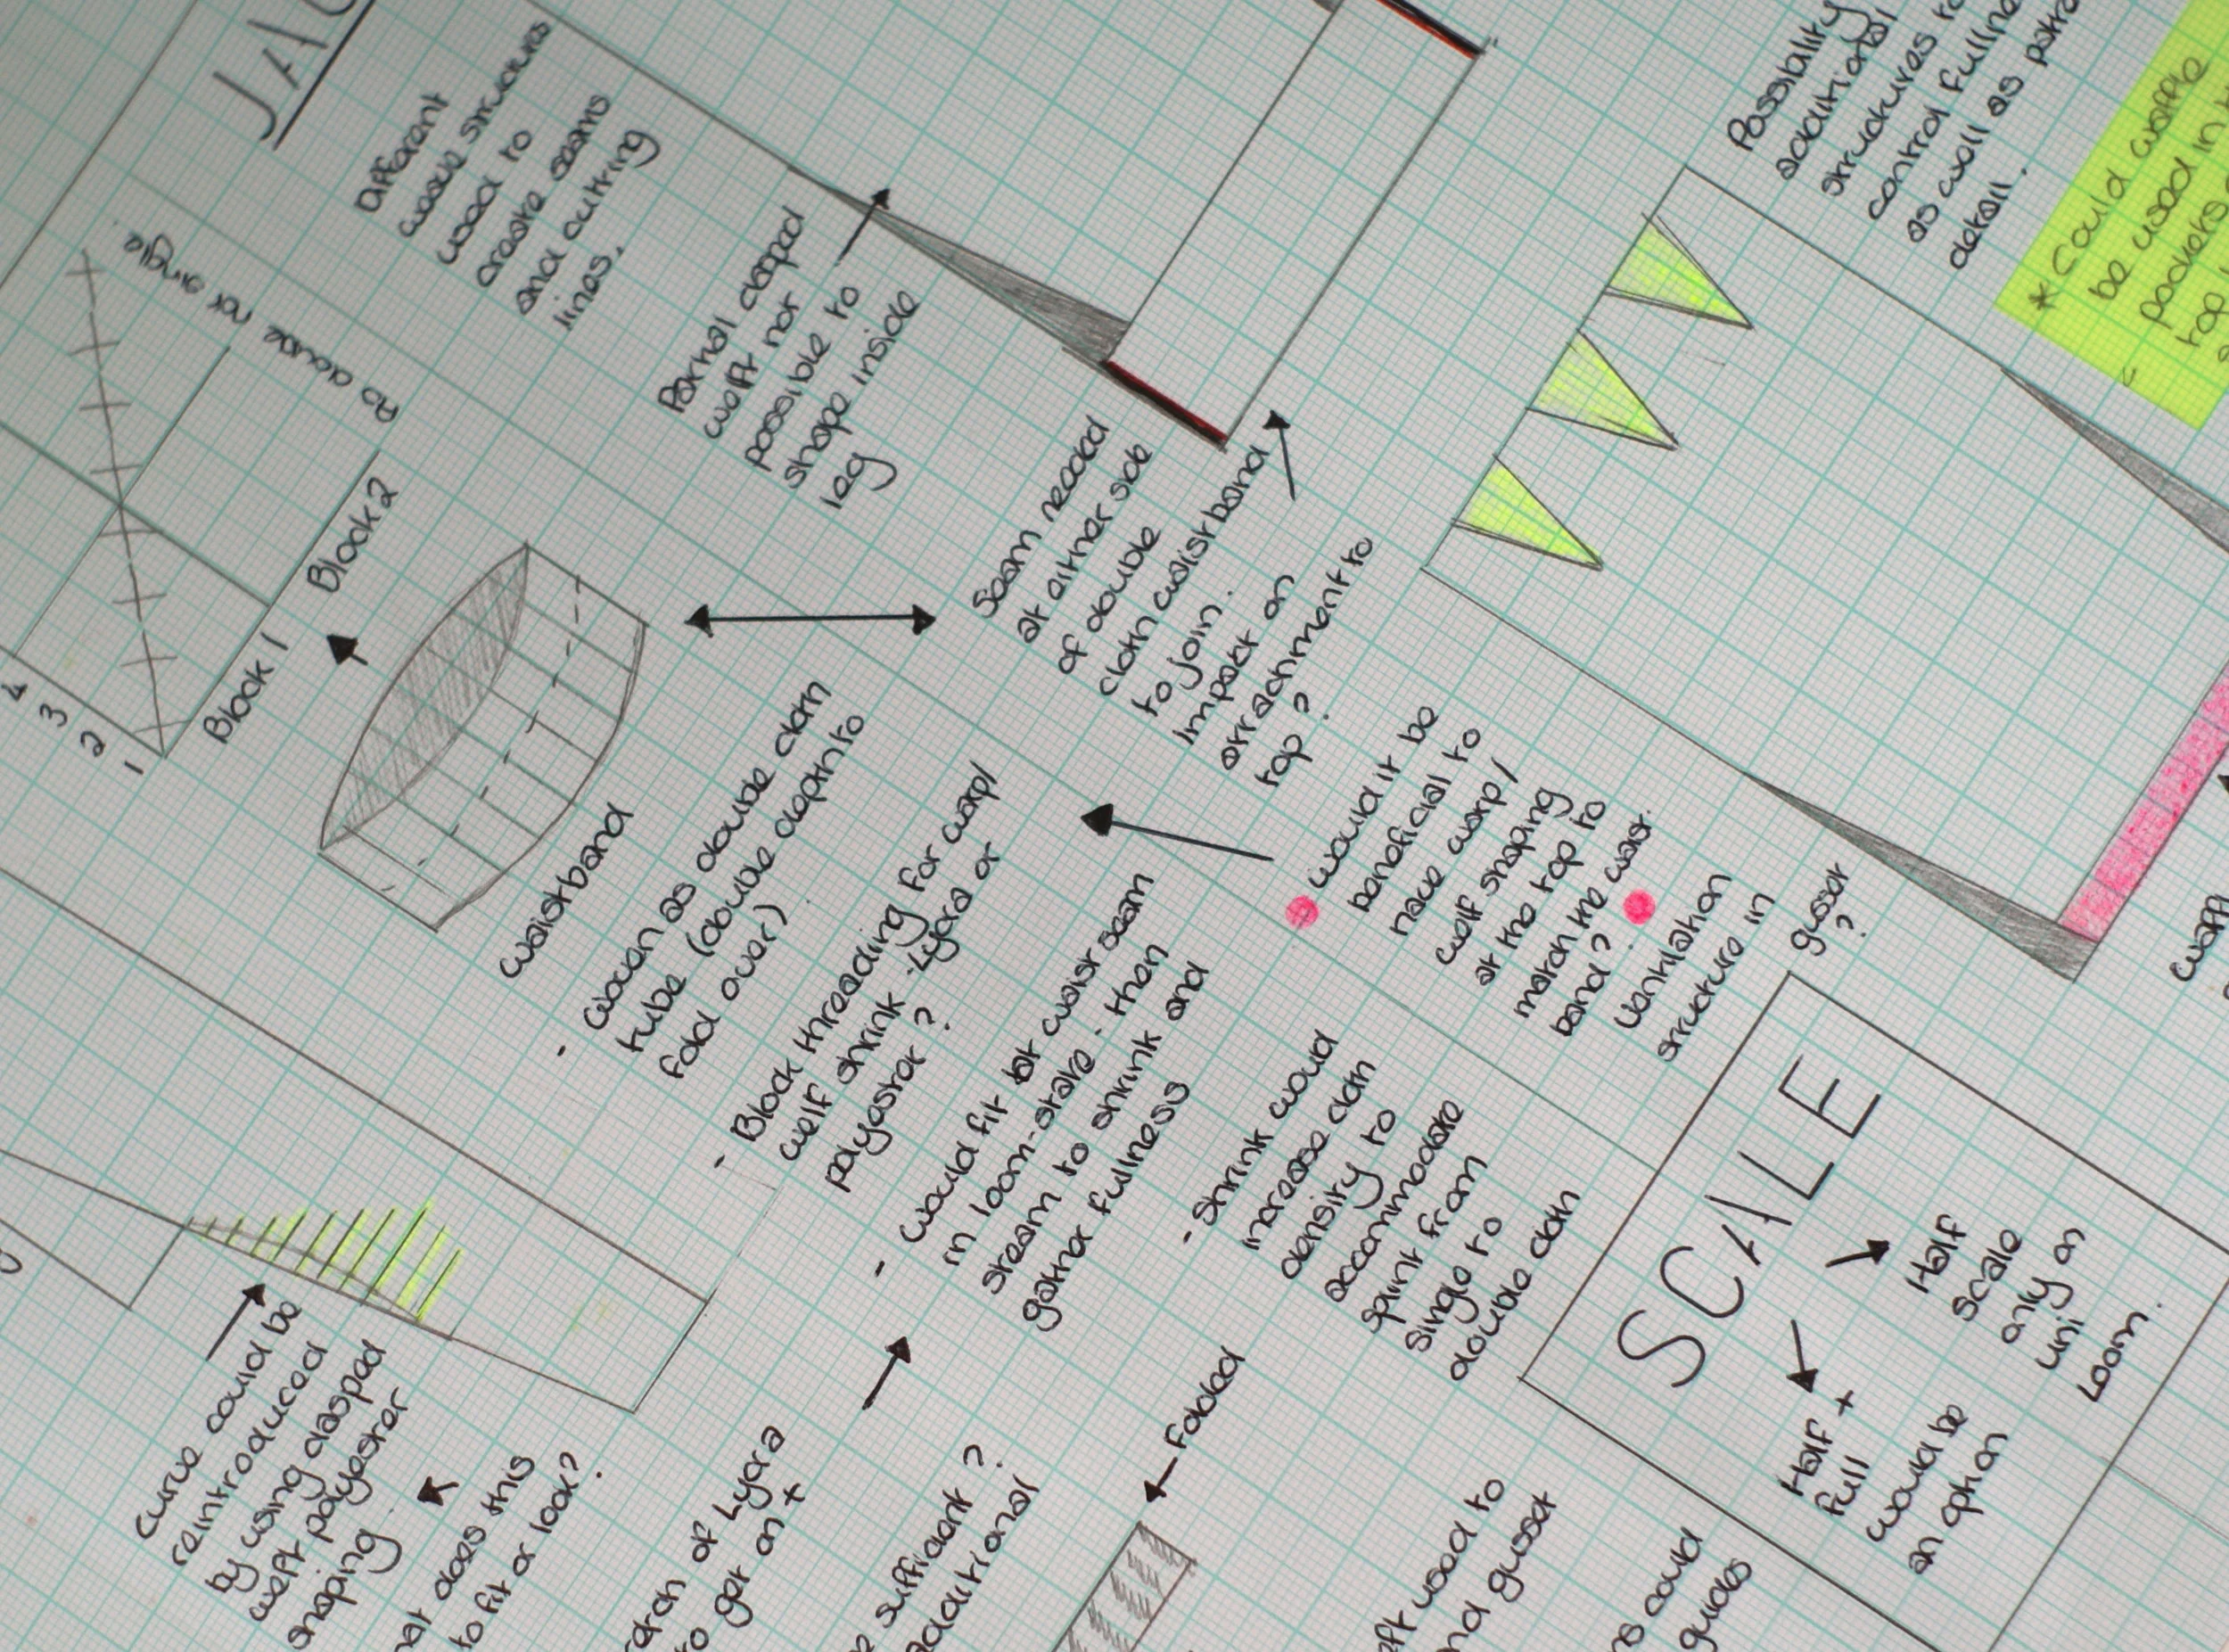 JAC
Different
weave structures
used to
create seams
and cutting
lines.
PD double not single
4
3
2
1
Block 1
Block 2
Partial clasped
weft not
possible to
shape inside
leg
Seam needed
at either side
of double
cloth waistband
to join.
Impact on
attachment to
top?
Possibility
additional
structures to
control fullne
as well as
detail.
* Could
be used in
pockets
top
waistband
- Woven as double cloth
tube (double depth to
fold over)
- Block threading for warp/
weft shrink - Lycra or
polyester?
- Would fit at waist seam
in loom-state - then
steam to shrink and
gather fullness
- Shrink would
increase cloth
density to
accommodate
sprint from
single to
double cloth
Would it be
beneficial to
have warp/
weft shaping
at the top to
match the waist
band?
Ventilation
structure in
gusset
?
SCALE
Half
Scale
only on
uni
Loom.
Half +
full
would be
an option
Curve could be
reintroduced
by using clasped
weft polyester
shaping.
hat does this
to fit or look?
of Lycra
to get on +
sufficient?
additional
Folded
eft used to
nd gusset
ns could
guides